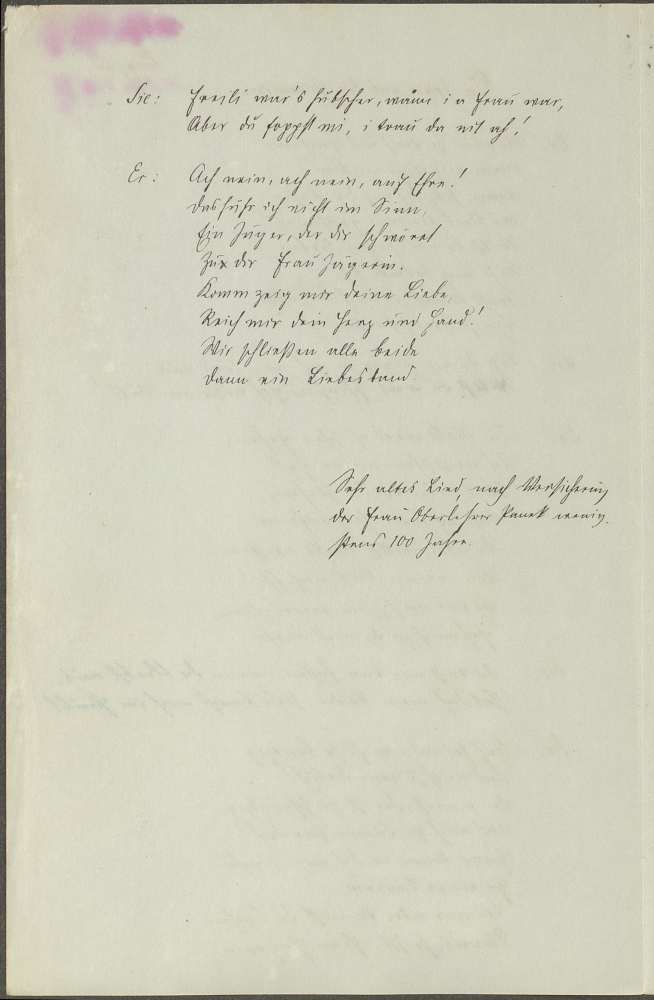 Sie: Freili war's hübscher, wänn i a Frau war,
Aber du foppst mi, i trau da nit ah!
Er: Ach nein, ach nein, auf Ehre!
Das führ ich nicht im Sinn,
Ein Jäger, der dir schwöret
Zur der Frau Jägerin.
Komm zeig mir deine Liebe,
Reich mir dein Herz und Hand!
Wir schließen alle beide
Dann ein Liebesband.
Sehr altes Lied, nach Versicherung
der Frau Oberlehrer Panek wenig-
stens 100 Jahre.